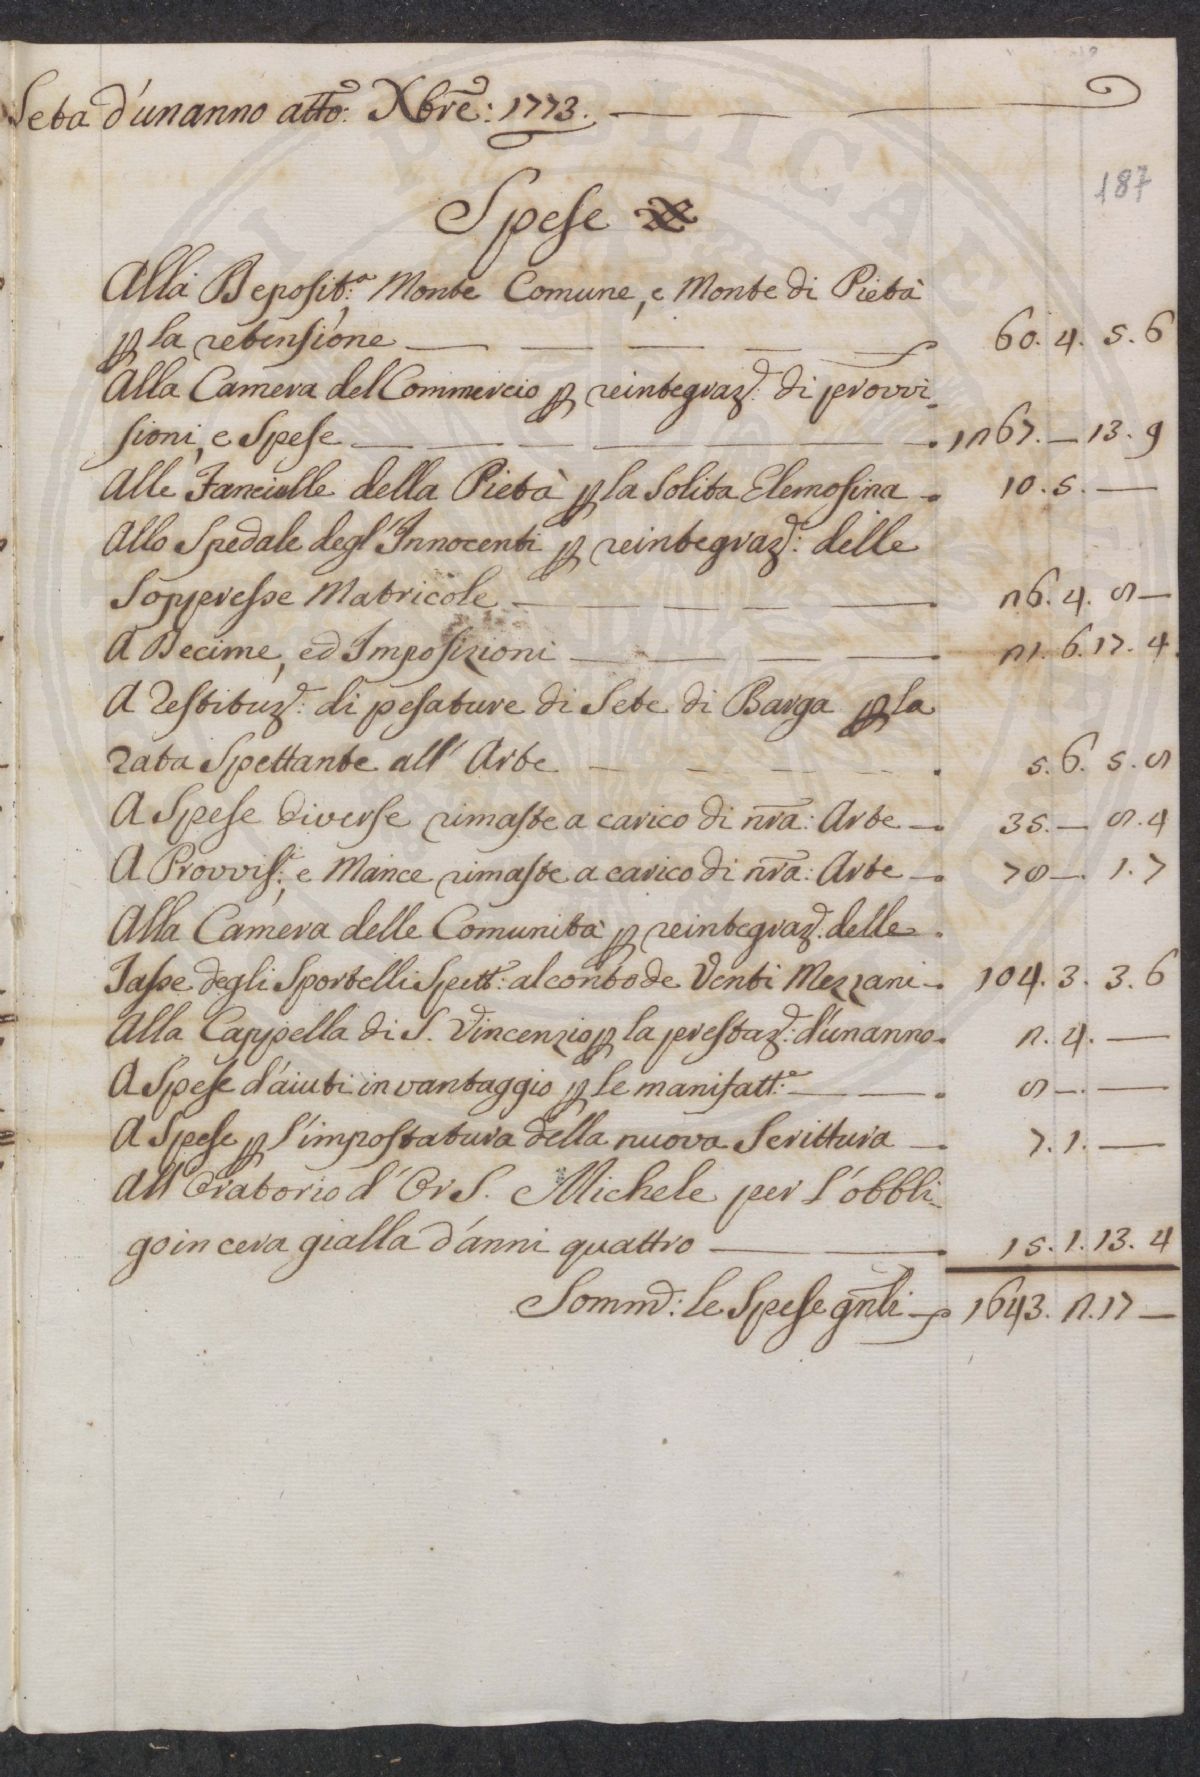 Seta d'un anno atto: Xbre: 1773.
187
Spese
Alla Deposit:ª Monte Comune, e Monte di Pietà
p la retensione — 60. 4. 5. 6
Alla Camera del Commercio p reintegraz: di provvi
sioni, e Spese — 1267. — 13. 9
Alle Fanciulle della Pietà p la Solita Elemosina — 10. 5. —
Allo Spedale degl'Innocenti p reintegraz: delle
Soppresse Matricole — 26. 4. 8 —
A Decime, ed Imposizioni — 21. 6. 17. 4
A restituz: di pesature di Sete di Barga p la
rata Spettante all' Arte — 5. 6. 5. 8
A Spese diverse rimaste a carico di nra: Arte — 35. — 8. 4
A Provvis:, e Mance rimaste a carico di nra: Arte — 78 —. 1. 7
Alla Camera delle Comunità p reintegraz. delle
Tasse degli Sportelli Spett: al conto de Venti Mezzani — 104. 3. 3. 6
Alla Cappella di S. Vincenzio p la prestaz: d'un anno — 2. 4. —
A Spese d'aiuti in vantaggio p le manifatt:ᵉ — 8 —. —
A Spese p l'impostatura della nuova Scrittura — 7. 1. —
All'Oratorio d'Or S. Michele per l'obbli
go in cera gialla d'anni quattro — 15. 1. 13. 4
Sommo: le Spese gnli — 1643. 2. 17 —